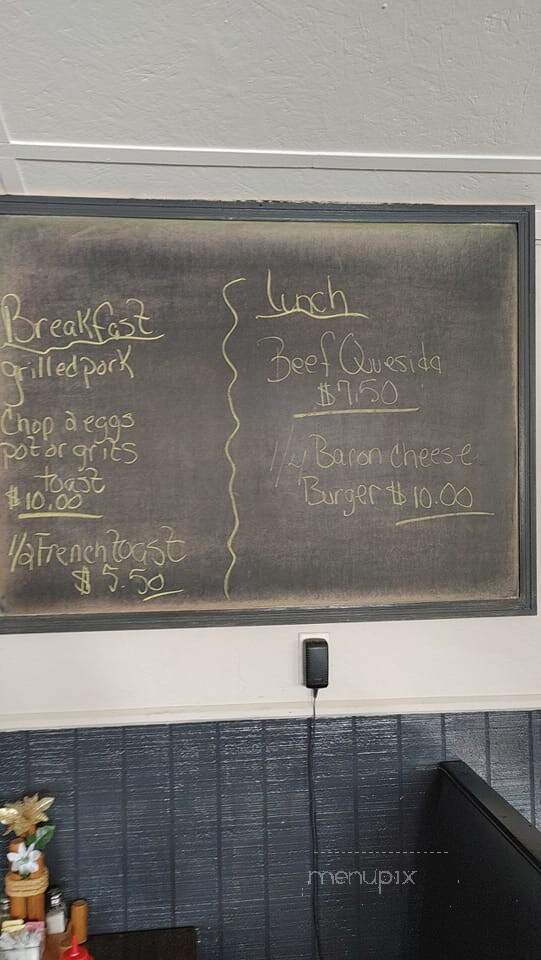 Breakfast
grilled pork
Chop 2 eggs
pot or grits
toast
$10.00
1/2 French toast
$5.50
lunch
Beef Quesida
$7.50
1/4 Baron cheese
Burger $10.00
menupix